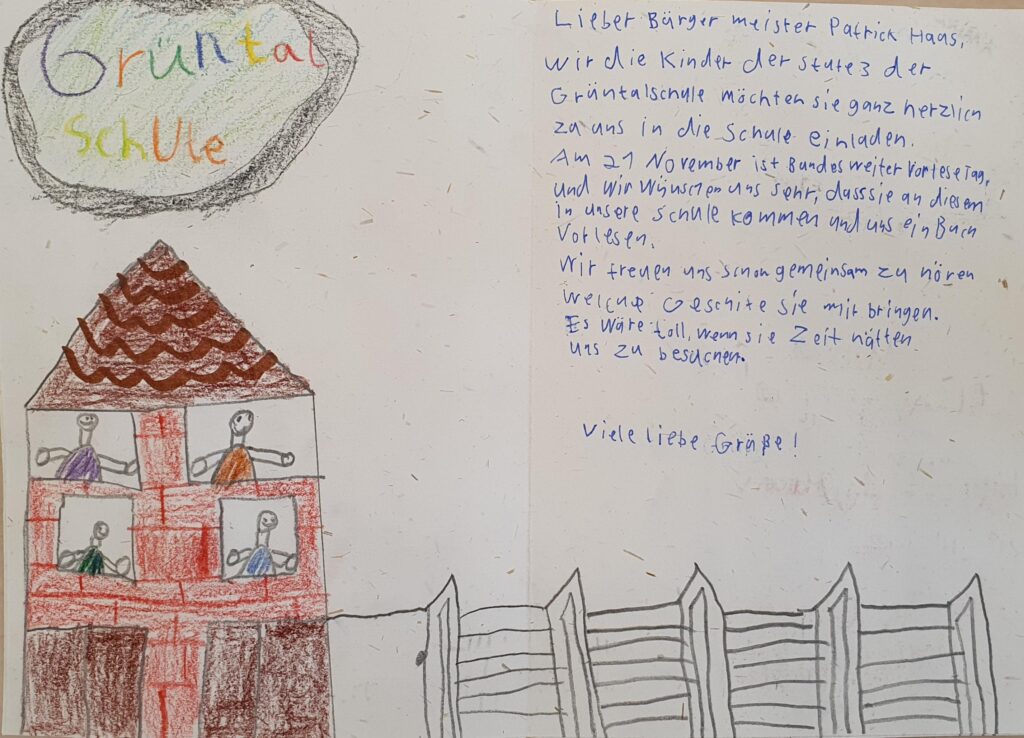 Grüntal
schule
Lieber Bürger meister Patrick Haas,
wir die Kinder der stufe3 der
Grüntalschule möchten sie ganz herzlich
zu uns in die Schule einladen.
Am 21 November ist Bundesweiter Vorlesetag,
und wir wünschen uns sehr, dasssie an diesem
in unsere schule kommen und uns ein Buch
Vorlesen.
Wir freuen uns schon gemeinsam zu hören
welche Geschite sie mit bringen.
Es wäre toll, wenn sie Zeit hätten
uns zu besuchen.
Viele liebe Grüße!